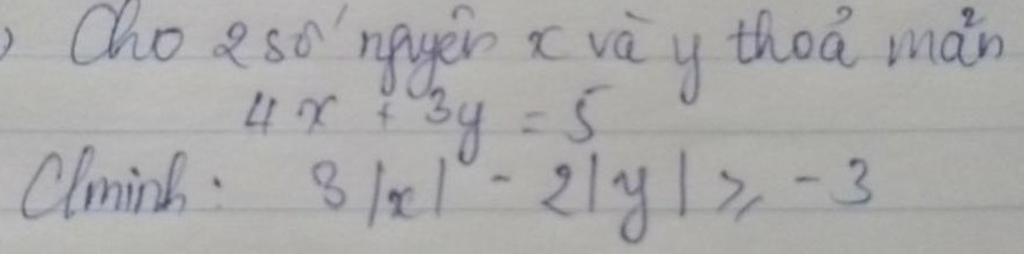 ) Cho 2 số nguyên x và y thoả mản
4x + 3y = 5
C/minh: 3|x| - 2|y| ≥ -3